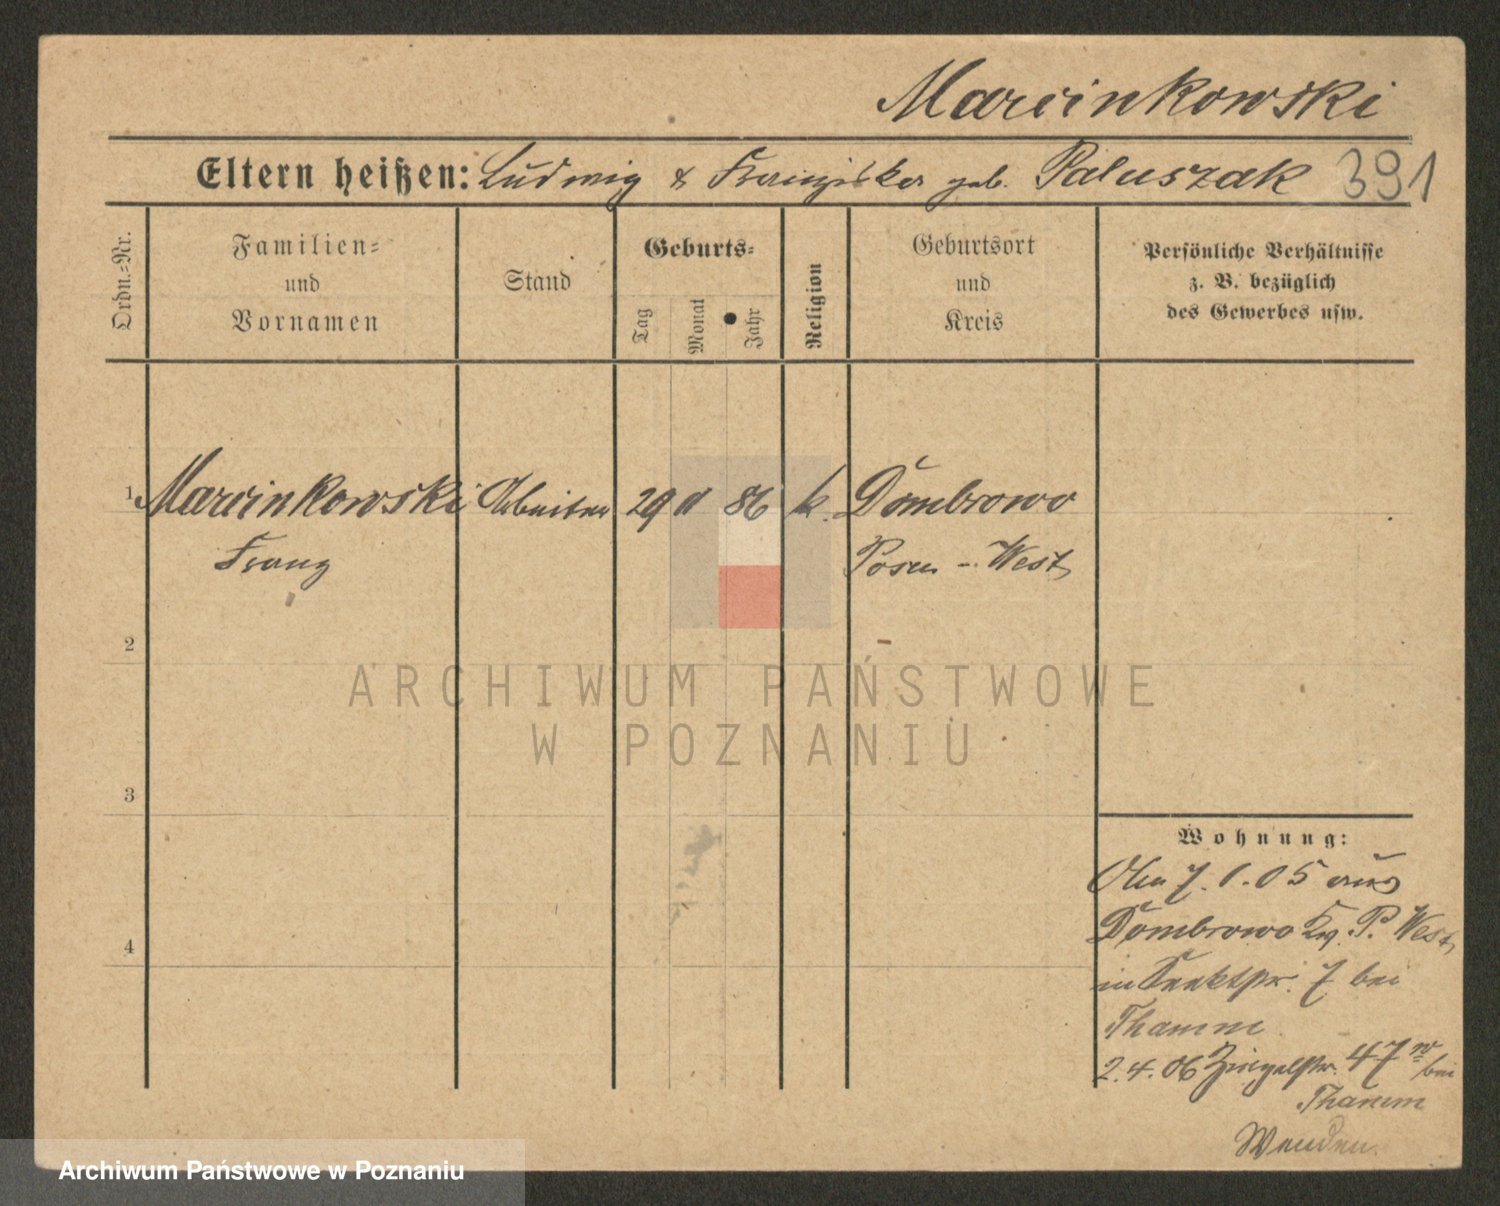 Marcinkowski
Eltern heißen: Ludwig & Franziska geb. Paluszak 391
Ordn.=Nr.
Familien=
und
Vornamen
Stand
Geburts=
Tag
Monat
Jahr
Religion
Geburtsort
und
Kreis
Persönliche Verhältnisse
z. B. bezüglich
des Gewerbes usw.
1 Marcinkowski Arbeiter 29 86 k. Dombrowo
Franz Posen - West
2
3
4
Wohnung:
7. 1. 05 aus
Dombrowo P. West
in 7 bei
Thamm
2. 4. 06 Ziegelstr. 47 bei
Thamm
Wenden.
ARCHIWUM PAŃSTWOWE
W POZNANIU
Archiwum Państwowe w Poznaniu